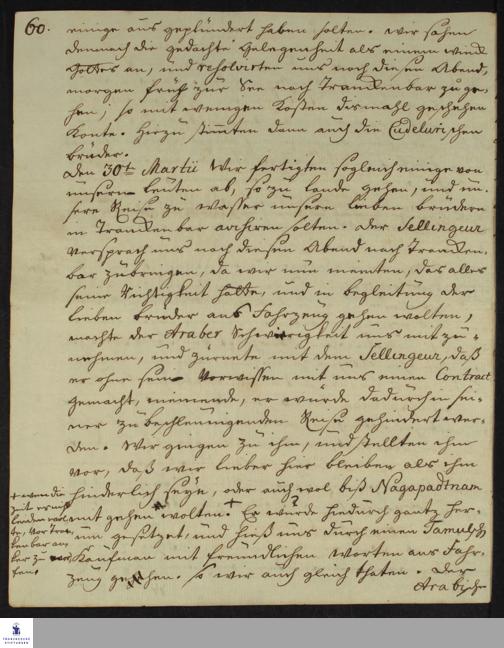 60.
einige aus geplündert haben solten. wir sahen
demnach die gedachte Gelegenheit als einen winck
Gottes an, und resolvirten uns noch diesen Abend,
morgen früh zur See nach Trankenbar zu ge-
hen, so mit wenigen Kosten dismahl geschehen
konte. Hierzu stimten dann auch die Cudelurischen
brüder.
Den 30ten Martii Wir fertigten sogleich einige von
unsern leuten ab, so zu lande gehen, und un-
sere Reise zu wasser unsern lieben brüdern
in Trankenbar avisiren solten. Der Sellingeur
versprach uns noch diesen Abend nach Tranken-
bar zubringen, da wir nun meinten, das alles
seine Richtigkeit hätte, und in begleitung der
lieben brüder ans Fahrzeug gehen wolten,
machte der Araber Schwierigkeit uns mit zu-
nehmen, und zürnete mit dem Sellingeur, daß
er ohne sein Vorwissen mit uns einen Contract
gemacht, meinende, er würde dadurch in sei-
ner zubeschleunigenden Reise gehindert wer-
den. Wir gingen zu ihm, und stellten ihm
vor, daß wir lieber hier bleiben als ihm
hinderlich seyn, oder auch wol biß Nagapadtnam
mit gehen wolten. + Er wurde hiedurch gantz her-
um gesetzet, und hieß uns durch einen Tamulsch
Kaufman mit freundlichen worten ans Fahr-
zeug gehen. so wir auch gleich thaten. Der
Arabische
+ wen die
zeit er nicht
leiden wol-
te, vor Tran-
ken bar an-
ker zu wer-
fen.
FRANCKESCHE
STIFTUNGEN